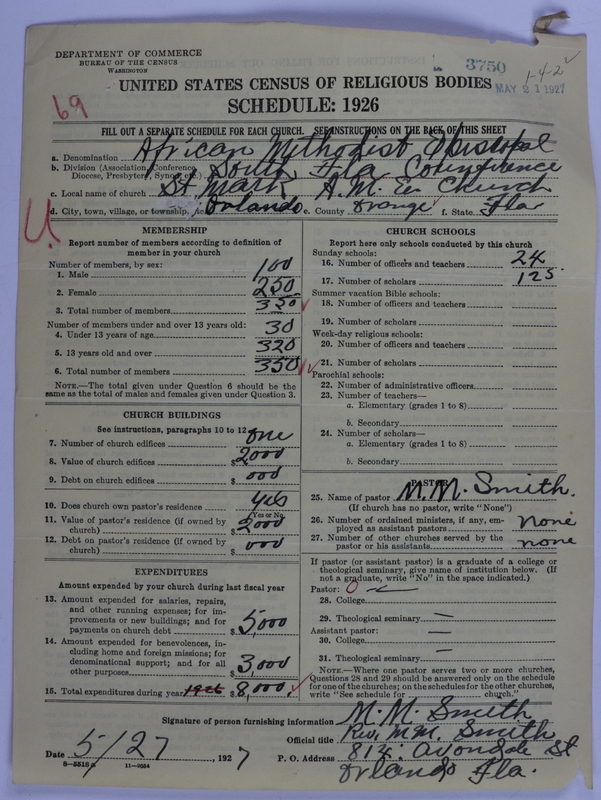 DEPARTMENT OF COMMERCE
BUREAU OF THE CENSUS
WASHINGTON
3750
1-4-2
MAY 21 1927
UNITED STATES CENSUS OF RELIGIOUS BODIES
SCHEDULE: 1926
69
FILL OUT A SEPARATE SCHEDULE FOR EACH CHURCH. SEE INSTRUCTIONS ON THE BACK OF THIS SHEET
a. Denomination African Methodist Episcopal
b. Division (Association, Conference, Diocese, Presbytery, Synod, etc.) South Fla Conference
c. Local name of church St. Mark A.M.E. Church
d. City, town, village, or township Orlando e. County Orange f. State Fla
U.
MEMBERSHIP
Report number of members according to definition of
member in your church
Number of members, by sex:
1. Male 100
2. Female 250
3. Total number of members 350
Number of members under and over 13 years old:
4. Under 13 years of age 30
5. 13 years old and over 320
6. Total number of members 350
NOTE.—The total given under Question 6 should be the
same as the total of males and females given under Question 3.
CHURCH BUILDINGS
See instructions, paragraphs 10 to 12
7. Number of church edifices one
8. Value of church edifices $ 2000
9. Debt on church edifices $ 000
10. Does church own pastor's residence yes
(Yes or No)
11. Value of pastor's residence (if owned by
church) $ 2000
12. Debt on pastor's residence (if owned by
church) $ 000
EXPENDITURES
Amount expended by your church during last fiscal year
13. Amount expended for salaries, repairs,
and other running expenses; for im-
provements or new buildings; and for
payments on church debt $ 5,000
14. Amount expended for benevolences, in-
cluding home and foreign missions; for
denominational support; and for all
other purposes $ 3,000
15. Total expenditures during year 1926 $ 8,000
CHURCH SCHOOLS
Report here only schools conducted by this church
Sunday schools:
16. Number of officers and teachers 24
17. Number of scholars 125
Summer vacation Bible schools:
18. Number of officers and teachers
19. Number of scholars
Week-day religious schools:
20. Number of officers and teachers
21. Number of scholars
Parochial schools:
22. Number of administrative officers
23. Number of teachers—
a. Elementary (grades 1 to 8)
b. Secondary
24. Number of scholars—
a. Elementary (grades 1 to 8)
b. Secondary
PASTOR
25. Name of pastor M. M. Smith.
(If church has no pastor, write "None")
26. Number of ordained ministers, if any, em-
ployed as assistant pastors none
27. Number of other churches served by the
pastor or his assistants none
If pastor (or assistant pastor) is a graduate of a college or
theological seminary, give name of institution below. (If
not a graduate, write "No" in the space indicated.)
Pastor: 0
28. College
29. Theological seminary —
Assistant pastor: —
30. College
31. Theological seminary —
NOTE.—Where one pastor serves two or more churches,
Questions 28 and 29 should be answered only on the schedule
for one of the churches; on the schedules for the other churches,
write "See schedule for church."
Signature of person furnishing information M. M. Smith
Official title Rev. M.M. Smith
Date 5/27, 1927 P. O. Address 814 Avondale St
Orlando Fla.
8-5518 a 11-9554